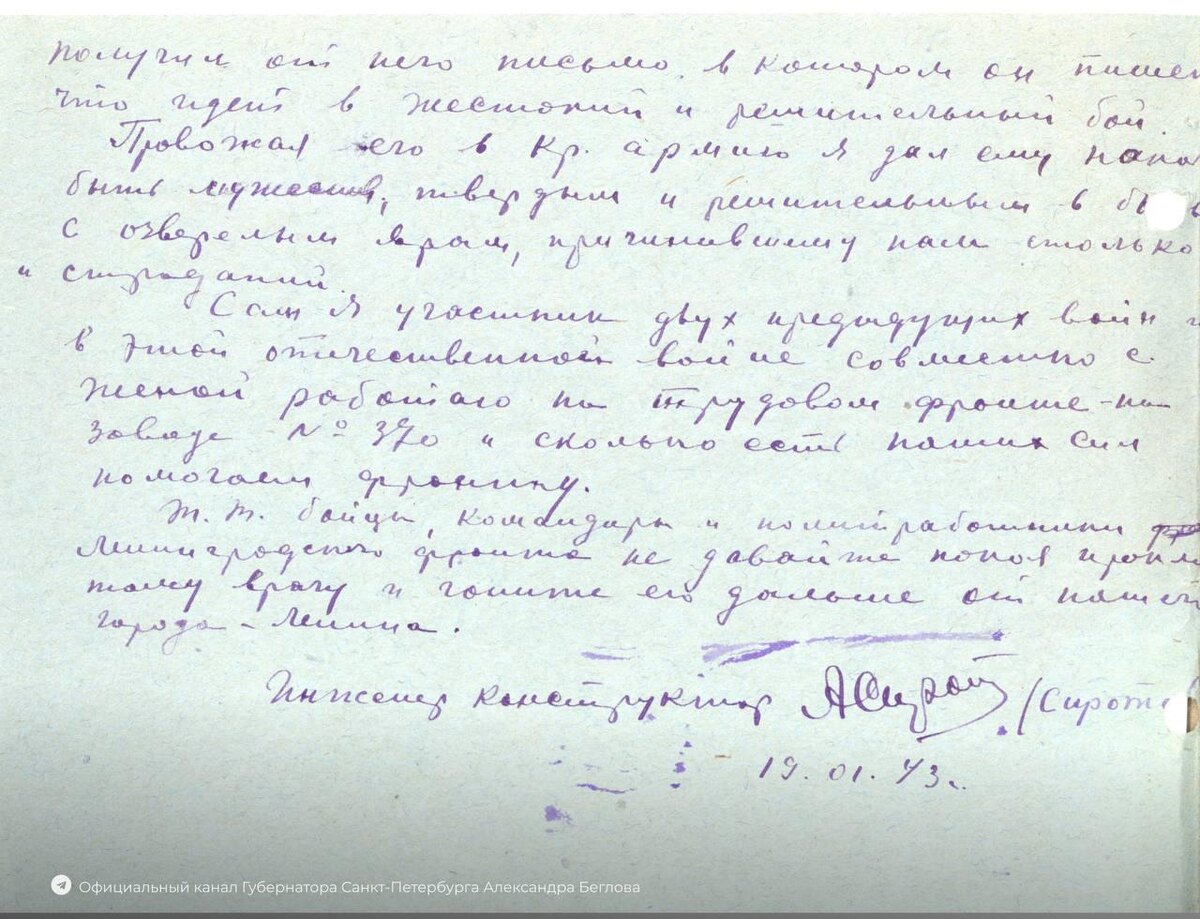 получил от него письмо, в котором он пишет
что идет в жестокий и решительный бой.
Провожая его в Кр. армию я дал ему нака
быть мужеств, твердым и решительным в
с озверелым врагом, причинившему нам столько
и страданий.
Сам я участник двух предыдущих войн и
в этой отечественной войне совместно с
женой работаю на трудовом фронте - на
заводе № 370 и сколько есть наших сил
помогаем фронту.
Т.Т. бойцы, командиры и политработники
Ленинградского фронта не давайте покоя прокля
тому врагу и гоните его дальше от нашего
города - Ленина.
Инженер конструктор АСирот (Сирот
19.01.43г.
Официальный канал Губернатора Санкт-Петербурга Александра Беглова